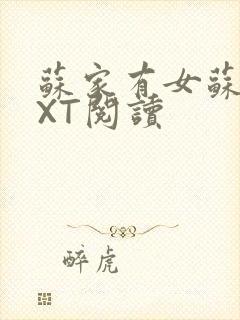 蘇家有女蘇
XT閱讀
醉虎